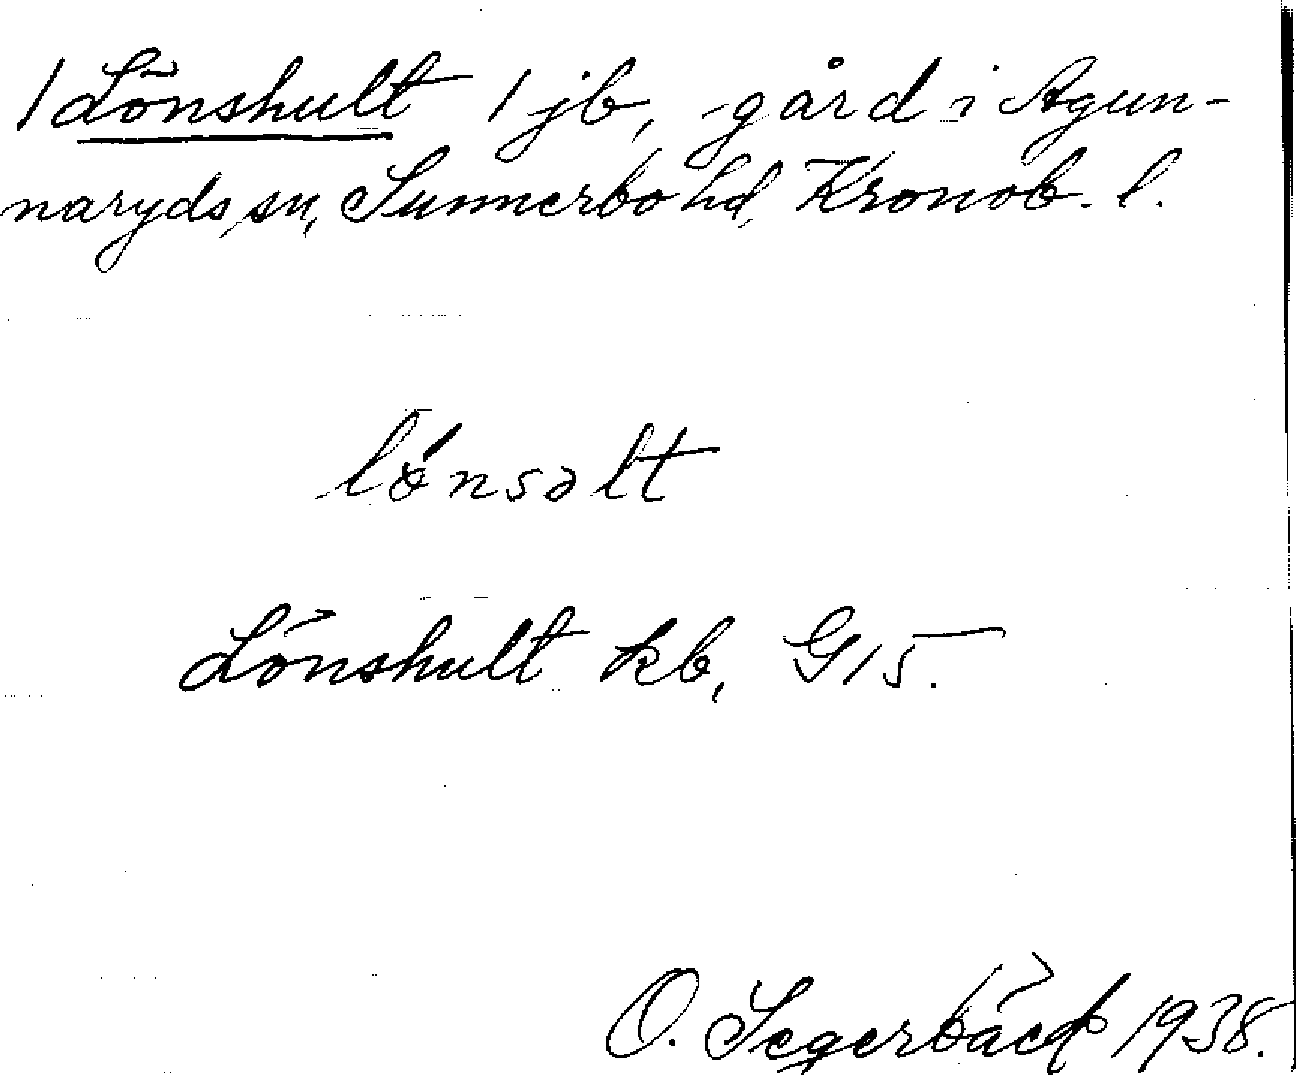 /Lönshult / jb, gård i Agun-
naryds sn, Sunnerbo hd, Kronob. l.
lǿnsəlt
Lönshult kb, G15.
O. Segerbäck 1938.